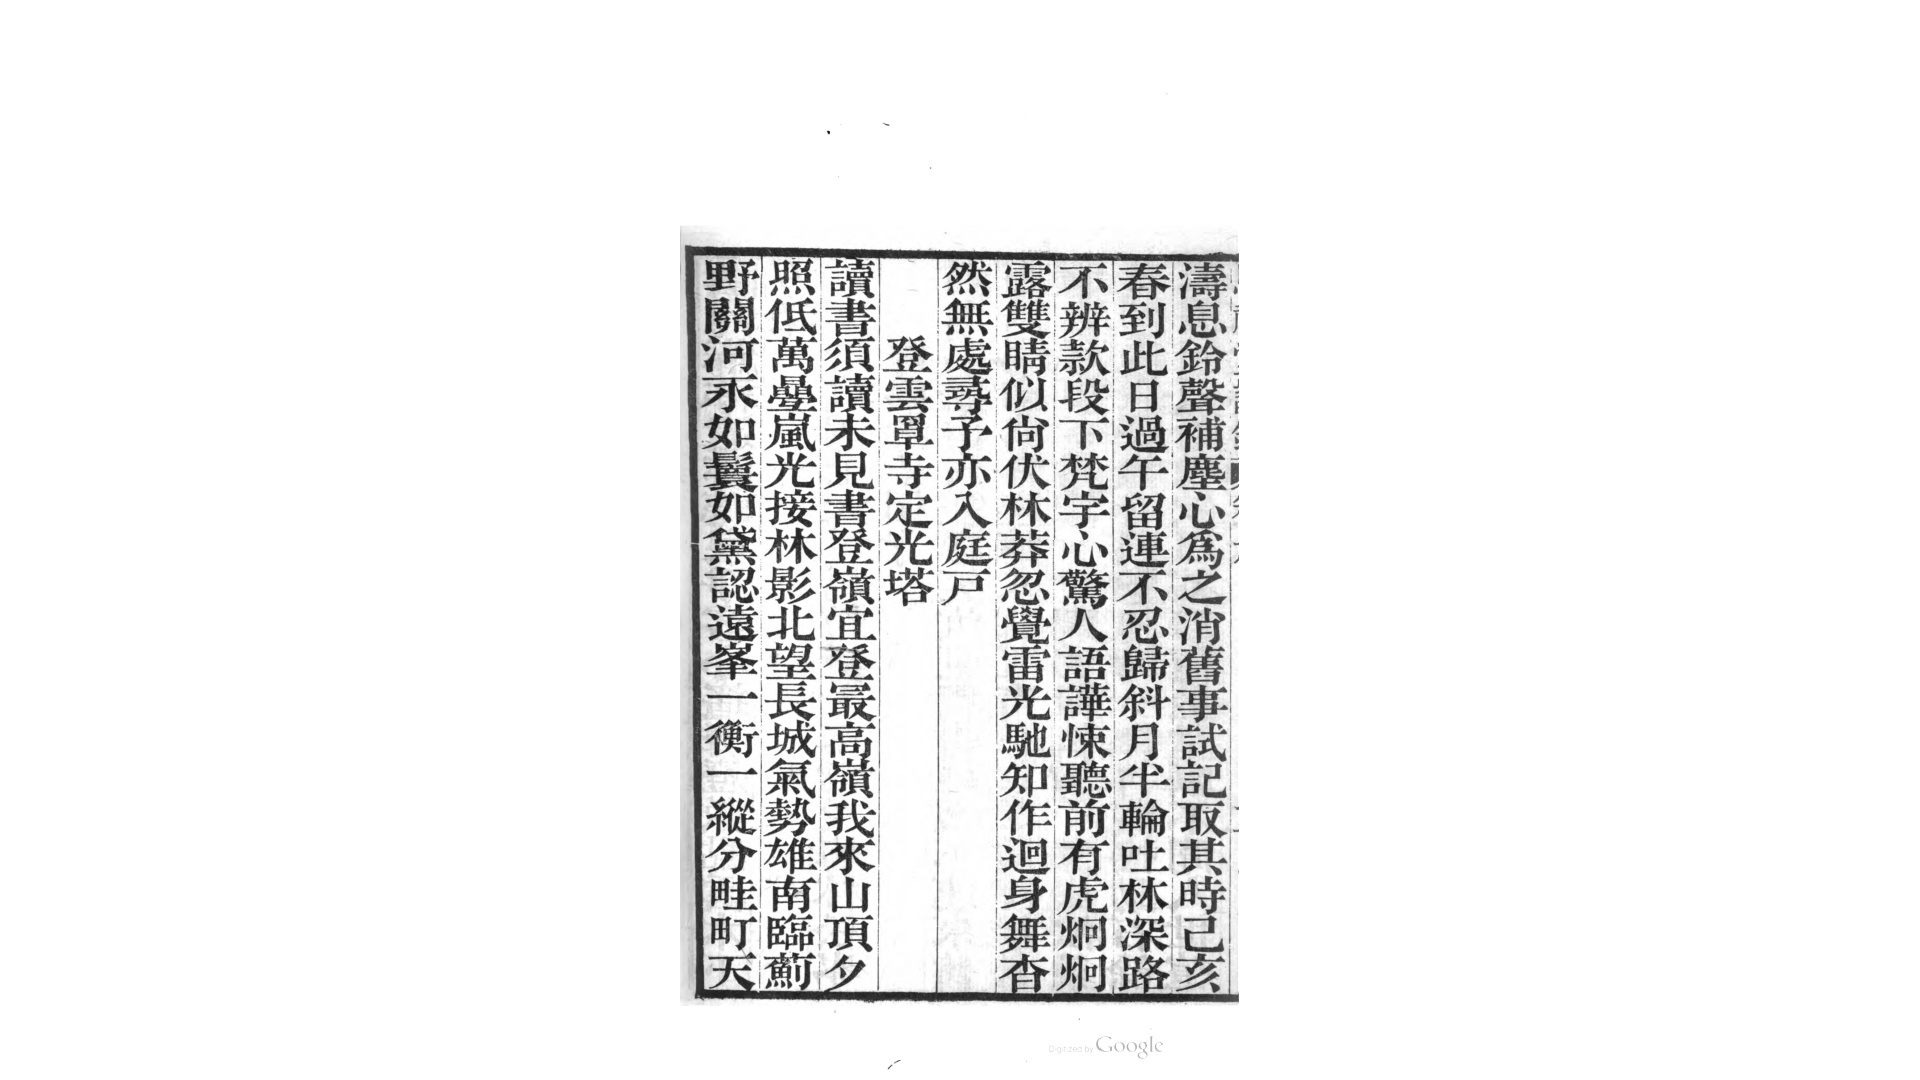 濤息鈴聲補塵心爲之消舊事試記取其時己亥
春到此日過午留連不忍歸斜月半輪吐林深路
不辨款段下梵宇心驚人語譁悚聽前有虎炯炯
露雙睛似尙伏林莽忽覺雷光馳知作迴身舞杳
然無處尋予亦入庭戸
登雲罩寺定光塔
讀書須讀未見書登嶺宜登最高嶺我來山頂夕
照低萬曡嵐光接林影北望長城氣勢雄南臨薊
野關河永如鬟如黛認遠峯一衡一縱分畦町天
Digitized by Google